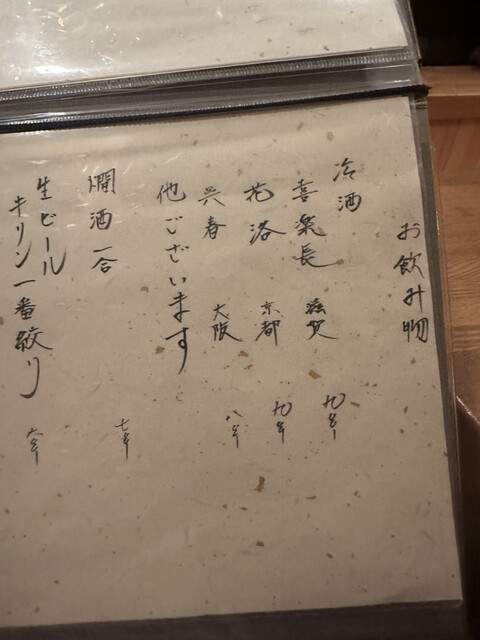 お飲み物
冷酒
喜楽長 滋賀 九年
花洛 京都 九年
呉春 大阪 八年
他ございます
燗酒一合 七年
生ビール
キリン一番絞り 六年